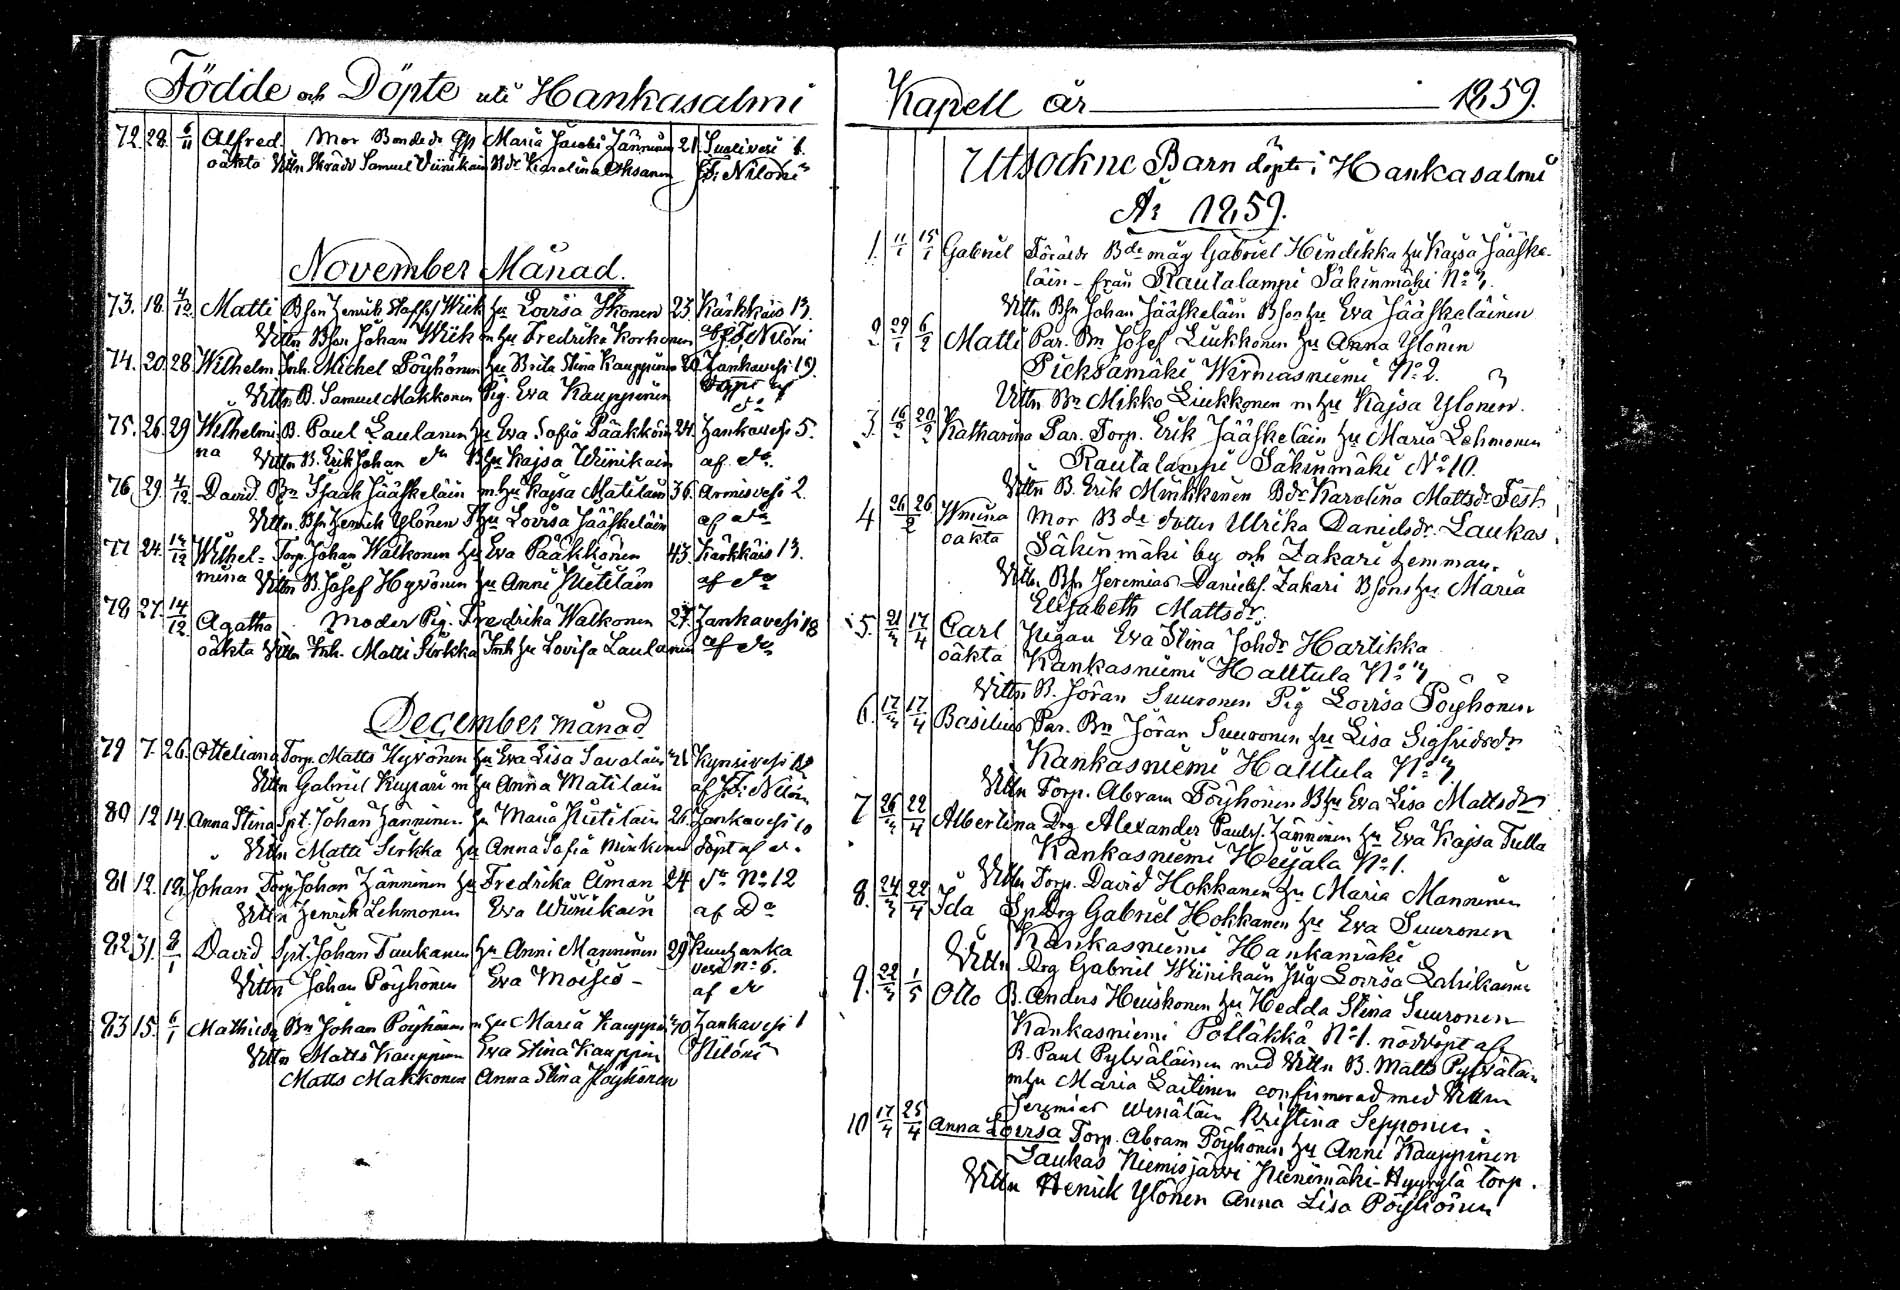 Födde och Döpte uti Hankasalmi
72. 28. 6/11 Alfred Mor Bondedr Maria Jacobi Jänninen 21. Suolivesi 6.
oäkta Vittn Skrädd Samuel Wiinikain Bdr Karolina Oksanen Niloni
November Månad.
73. 18. 4/12 Matti Bson Henrik Staffs/ Wiik hu Lovisa Ikonen 23. Kärkkäis 13.
Vittn Bson Johan Wiik m hu Fredrika Korhonen af Niloni
74. 20. 28 Wilhelm Inh. Michel Pöyhönen hu Brita Stina Kauppinen Hankavesi 19
Vittn B. Samuel Makkonen Pig. Eva Kauppinen döpt af do
75. 26. 29 Wilhelmi- B. Paul Laulanen hu Eva Sofia Pääkköin 24. Hankavesi 5.
na Vittn B. Erik Johan do Bhu Kajsa Wiinikain af do
76 29 4/12 David. Bn Isaak Jääskeläin m hu Kajsa Matilain 36. Armisvesi 2.
Vittn. Bsn Henrik Ylönen hu Lovisa Jääskeläin af do
77 24. 14/12 Wilhel- Torp. Johan Walkonen hu Eva Pääkkönen 43. Kärkkäis 13.
mina Vittn B. Josef Hyvönen hu Anni Hietilain af do
78 27. 14/12 Agatha Moder Pig. Fredrika Walkonen 27. Hankavesi 18
oäkta Vittn Inh. Matti Sirkka Inh hu Lovisa Laulanen af do
December månad
79 7. 26. Otteliana Torp. Matts Hyvönen hu Eva Lisa Savolain 21 Kynsivesi 18
Vittn Gabriel Kuparı m hu Anna Matilain af Nilon
80 12 14. Anna Stina Spt. Johan Jänninen hu Maria Hietilain 26. Hankavesi 10
Vittn Matti Sirkka hu Anna Sofia Minkinen döpt af d.
81 12. 18. Johan Torp Johan Jänninen hu Fredrika Åman 24 do No 12
Vittn Henrik Lehmonen Eva Wiinikain af Do
82 31. 8/1 David Spt. Johan Tuukanen hu Anni Manninen 29 Kuuhanka
vesi No 6.
Vittn Johan Pöyhönen Eva Moises - af do
83 15. 6/1 Mathilda Bn Johan Pöyhönen m hu Maria Kauppin 40 Hankavesi 1
Vittn Matts Kauppinen Eva Stina Kauppin Niloni
Matts Makkonen Anna Stina Pöyhönen
Kapell år 1859.
Utsockne Barn döpte i Hankasalmi
År 1859.
1. 11/1 15/1 Gabriel Föräldr Bde måg Gabriel Hindikka hu Kajsa Jääske-
läin - från Rautalampi Säkinmäki No 7.
Vittn Bsn Johan Jääskeläin Bson hu Eva Jääskeläinen
2. 29/1 6/2 Matti Par. Bn Josef Liukkonen hu Anna Ylönen
Pieksämäki Wirmasniemi No 2.
Vittn Bn Mikko Liukkonen m hu Kajsa Ylönen.
3. 16/2 20/2 Katharina Par. Torp. Erik Jääskeläin hu Maria Lehmonen
Rautalampi Säkinmäki No 10.
Vittn B. Erik Minkkinen Bdr Karolina Mattsdr Fesh
4 26/2 26 Wmina Mor Bde dotter Ulrika Danielsdr. Laukas
oäkta Säkinmäki by och Zakari hemman.
Vittn Bsn Jeremias Daniels. Zakari Bsons hu Maria
Elisabeth Mattsdr.
5. 21/3 17/4 Carl Pigan Eva Stina Johdr Hartikka
oäkta Kankasniemi Halttula No 7
Vittn B. Jöran Suuronen Pig Lovisa Pöyhönen
6. 17/3 17/4 Basilius Par. Bn Jöran Suuronen hu Lisa Sigfridsdr
Kankasniemi Halttula No 7.
Vittn Torp. Abram Pöyhönen Bhu Eva Lisa Mattsdr
7 26/3 22/4 Albertina Drg Alexander Pauls. Jänninen hu Eva Kajsa Tulla
Kankasniemi Heijala No 1.
Vittn Torp. David Hokkanen hu Maria Manninen
8. 24/3 22/4 Ida Sp Drg Gabriel Hokkanen hu Eva Suuronen
Kankasniemi Hankamäki
Vittn Drg Gabriel Wiinikain Pig Lovisa Lahikainen
9. 22/3 1/5 Otto B. Anders Heiskonen hu Hedda Stina Suuronen
Kankasniemi Pölläkkä No 1. nöddöpt af
B. Paul Pylväläinen med Vittn B. Matts Pylväläin
m hu Maria Laitinen confirmerad med Vittn
Jeremias Wenäläin Kristina Sepponen.
10 17/4 25/4 Anna Lovisa Torp. Abram Pöyhönen hu Anni Kauppinen
Laukas Niemisjärvi Pienimäki- Hyyrylä torp.
Vittn Henrik Ylönen Anna Lisa Pöyhönen